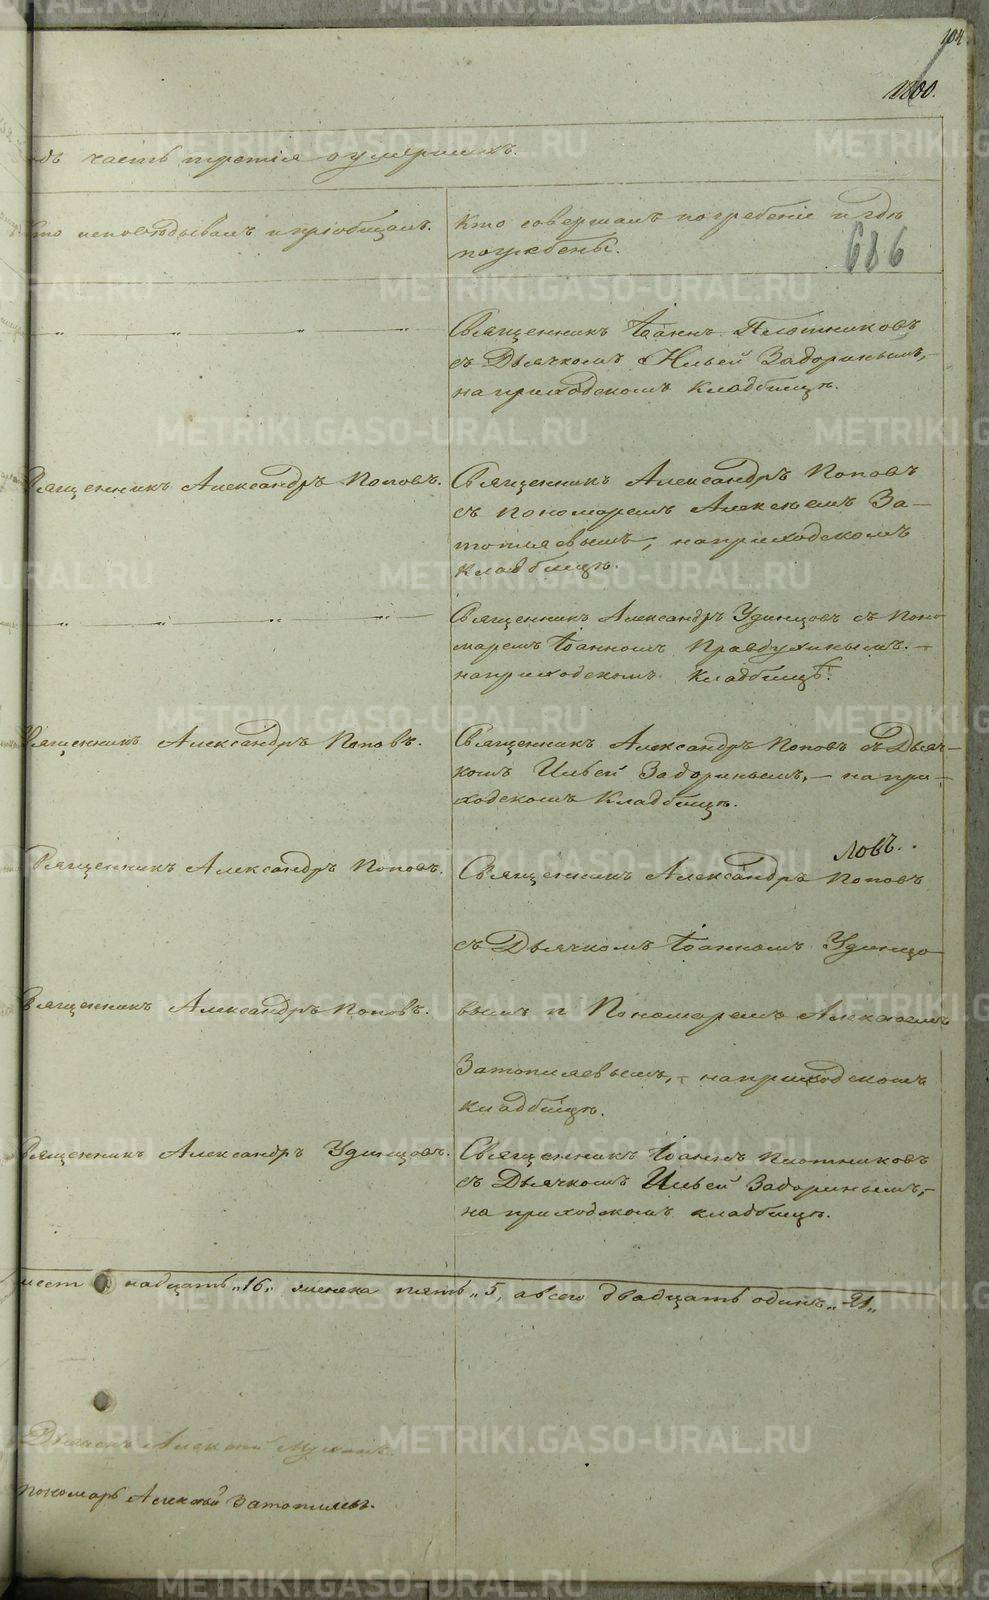 104
1200.
часть третія о умершихъ.
кто исповѣдывалъ и пріобщалъ.
кто совершалъ погребеніе и гдѣ
погребены.
686
Священникъ Іоаннъ Плотниковъ
съ Дьячкомъ Ильей Задоринымъ,-
на приходскомъ кладбищѣ.
Священникъ Александръ Поповъ.
Священникъ Александръ Поповъ
съ Пономаремъ Алексѣемъ За-
топляевымъ, на приходскомъ
кладбищѣ.
Священникъ Александръ Удинцовъ съ Поно
маремъ Іоанномъ Правдухинымъ. -
на приходскомъ кладбищѣ.
Священникъ Александръ Поповъ.
Священникъ Александръ Поповъ съ Дьяч-
комъ Ильей Задоринымъ, - на при-
ходскомъ кладбищѣ.
Священникъ Александръ Поповъ.
ловъ.
Священникъ Александръ Поповъ
съ Дьячкомъ Іоанномъ Удинцо
Священникъ Александръ Поповъ.
вымъ и Пономаремъ Алексѣемъ
Затопляевымъ, - на приходскомъ
кладбищѣ.
Священникъ Александръ Удинцовъ.
Священникъ Іоаннъ Плотниковъ
съ Дьячкомъ Ильей Задоринымъ,-
на приходскомъ кладбищѣ.
шестнадцать „16„ женска пять „5, а всего двадцать одинъ „21„
Дьячекъ Алексѣй
Пономарь Алексѣй Затопляевъ.
METRIKI.GASO-URAL.RU